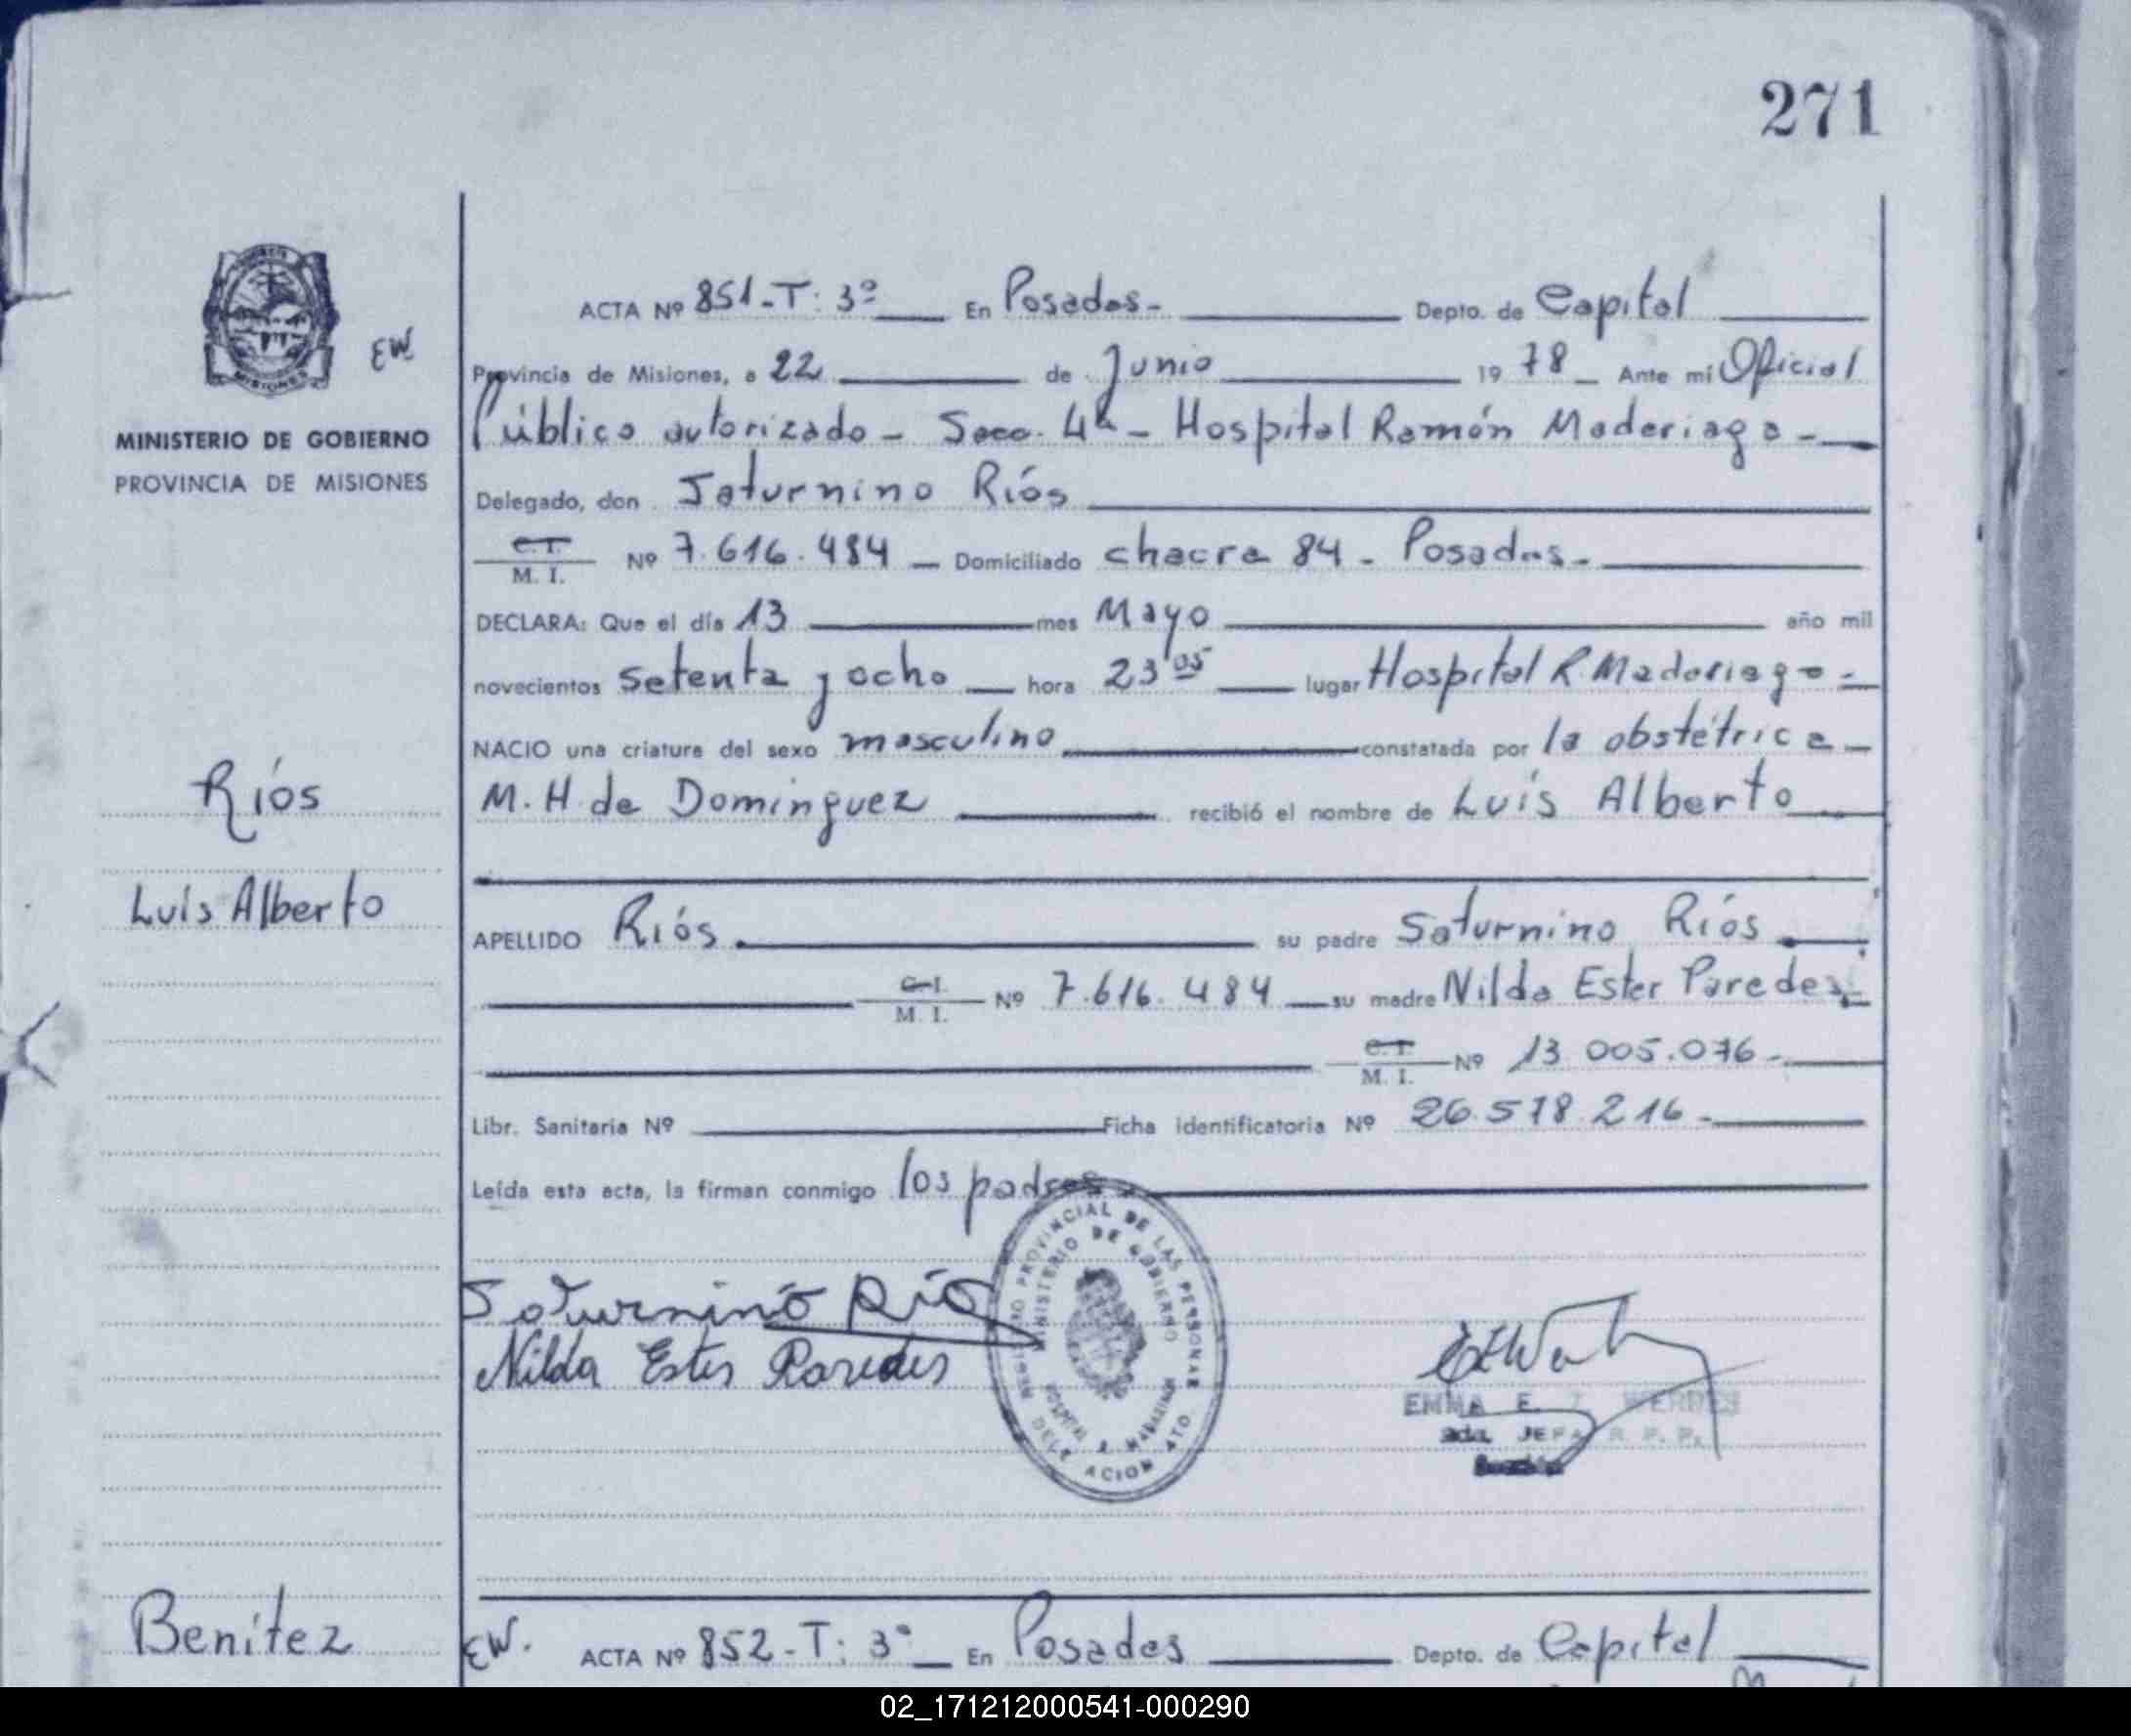 271
ACTA Nº 851-T: 3º En Posadas- Depto. de Capital
EW
Provincia de Misiones, a 22 de Junio 1978 Ante mí Oficial
Público autorizado - Secc. 4ª - Hospital Ramón Madariaga -
MINISTERIO DE GOBIERNO
PROVINCIA DE MISIONES
Delegado, don Saturnino Ríos
C. I. M. I. Nº 7.616.484 - Domiciliado chacra 84 - Posadas -
DECLARA: Que el día 13 mes Mayo año mil
novecientos setenta y ocho hora 23 05 lugar Hospital R. Madariaga -
NACIO una criatura del sexo masculino constatada por la obstétrica -
M. H. de Dominguez recibió el nombre de Luís Alberto
Ríos
Luís Alberto
APELLIDO Ríos su padre Saturnino Ríos
C. I. M. I. Nº 7.616.484 su madre Nilda Ester Paredes
C. I. M. I. Nº 13.005.076 -
Libr. Sanitaria Nº Ficha identificatoria Nº 26.578.216 -
Leída esta acta, la firman conmigo los padres -
REGISTRO PROVINCIAL DE LAS PERSONAS
MINISTERIO DE GOBIERNO
HOSPITAL R. MADARIAGA
DELEGACION 4TO.
MISIONES
Saturnino Ríos
Nilda Ester Paredes
EMMA E.
JEFA R. P. P.
Benítez
EW. ACTA Nº 852-T: 3º En Posadas Depto. de Capital
02_171212000541-000290